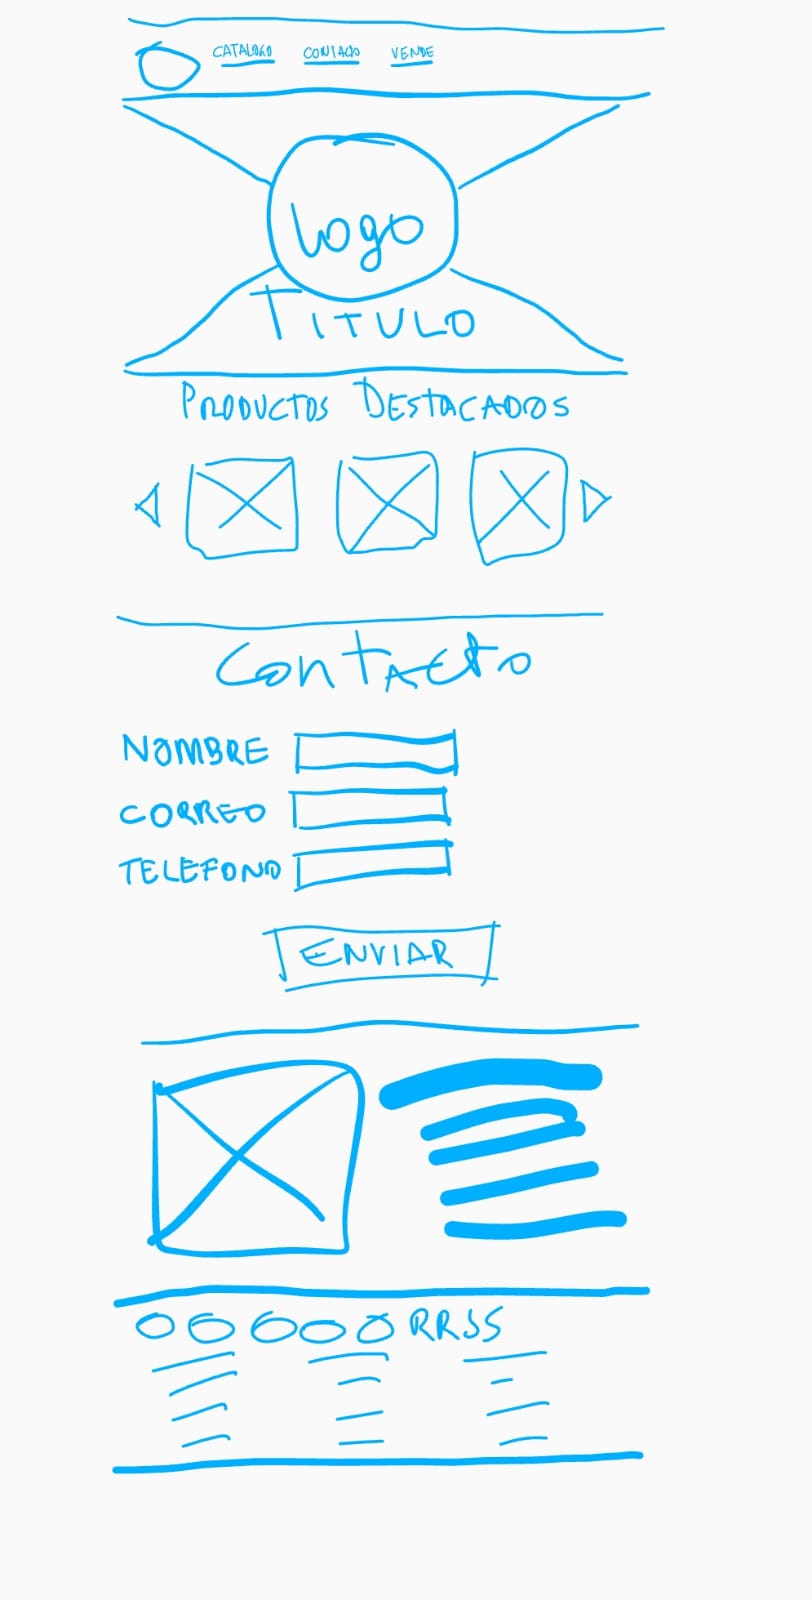 CATALOGO CONTACTO VENDE
Logo
TITULO
PRODUCTOS DESTACADOS
CONTACTO
NOMBRE
CORREO
TELEFONO
ENVIAR
RRSS